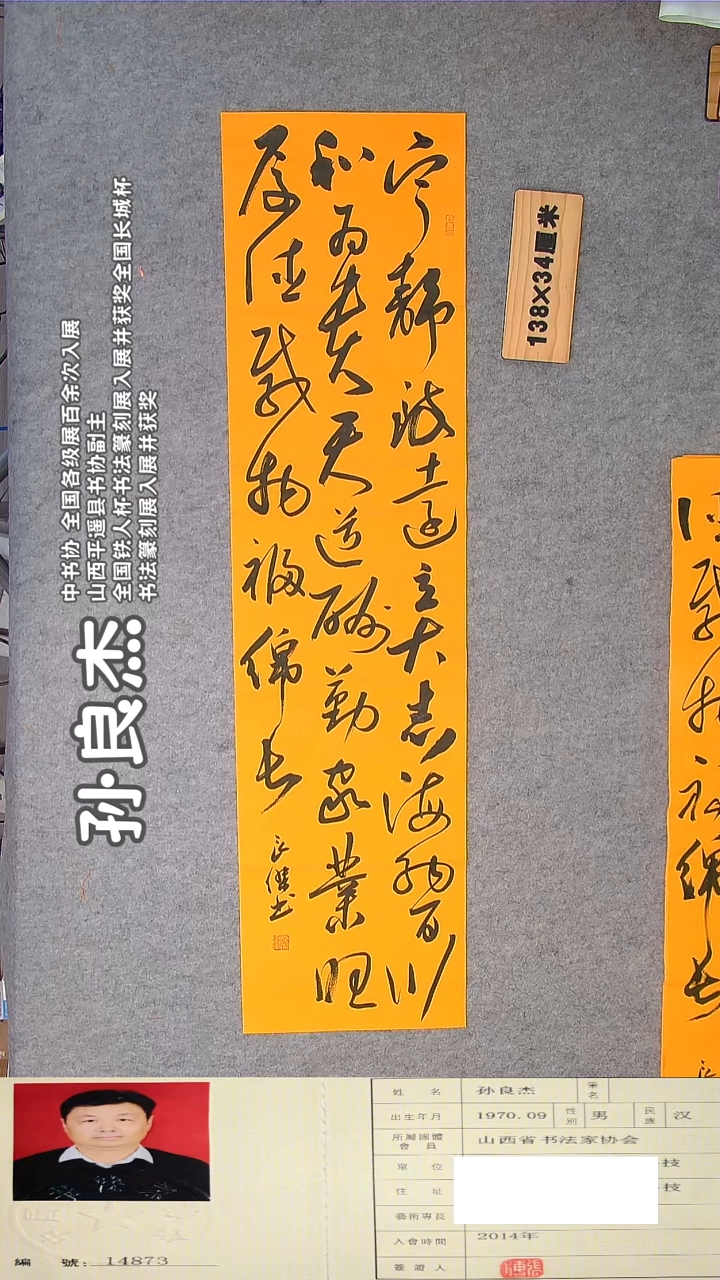 宁静致遠立大志海纳百川
和为贵天道酬勤家業旺
厚德载物福绵长
良傑书
138×34厘米
德载物福绵长
中书协 全国各级展百余次入展
山西平遥县书协副主
全国铁人杯书法篆刻展入展并获奖全国长城杯
书法篆刻展入展并获奖
孙良杰
姓 名 孙良杰 筆名
出生年月 1970.09 性別 男 民族 汉
所屬團體會員 山西省书法家协会
單 位 技
住 址 技
藝術專長
入會時間 2014年
簽證人
編 號: 14873